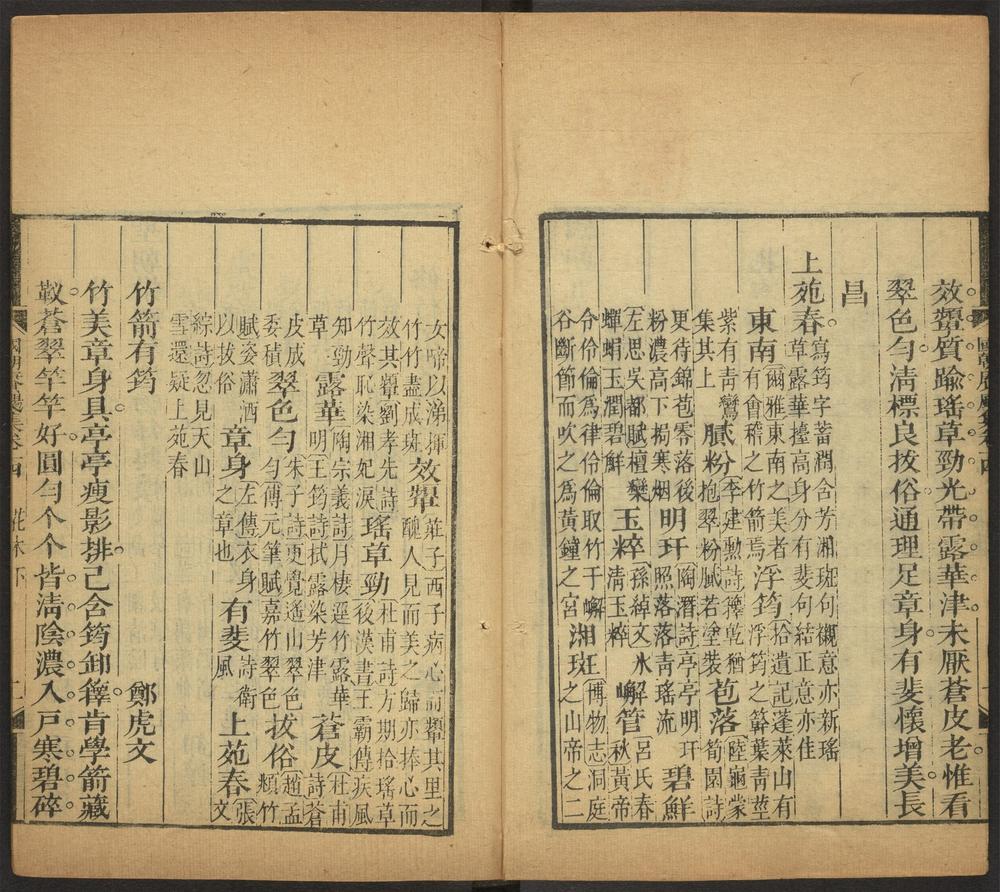 效顰質踰瑤草勁光帶露華津未厭蒼皮老惟看
翠色勻淸標良拔俗通理足章身有斐懷增美長
昌
上苑春寫筠字蓄潤含芳湘斑句襯意亦新瑤
草露華擡高身分有斐句結正意亦佳
東南爾雅東南之美者
有會稽之竹箭焉
浮筠拾遺記蓬萊山有
浮筠之簳葉靑莖
紫有靑鸞
集其上
膩粉李建勳詩籜乾猶
抱翠粉膩若塗裝
苞落陸龜蒙
筍園詩
更待錦苞零落後
粉濃高下搊寒烟
明玕陶潛詩亭亭明玕
照落落淸瑤流
碧鮮
左思吳都賦檀欒
蟬蜎玉潤碧鮮
玉粹孫綽文冰解
淸玉粹
嶰管呂氏春
秋黃帝
令伶倫爲律伶倫取竹于嶰
谷斷節而吹之爲黃鐘之宮
湘斑博物志洞庭
之山帝之二
女啼以涕揮
竹竹盡成斑
效顰莊子西子病心而顰其里之
醜人見而美之歸亦捧心而
效其顰劉孝先詩
竹聲恥染湘妃淚
瑤草勁杜甫詩方期拾瑤草
後漢書王霸傳疾風
知勁
草
露華陶宗義詩月棲逕竹露華
明王筠詩拭露染芳津
蒼皮杜甫
詩蒼
皮成
委積
翠色勻宋子詩更覺遙山翠色
勻傅元筆賦嘉竹翠色
拔俗趙孟
頫竹
賦姿瀟洒
以拔俗
章身左傳衣身
之章也
有斐詩衛
風
上苑春張
文
綜詩忽見天山
雪還疑上苑春
竹箭有筠 鄭虎文
竹美章身具亭亭瘦影排已含筠卸籜肯學箭藏
㪚蒼翠竿竿好圓勻个个皆淸陰濃入戶寒碧碎
集卷十四 花木下 二